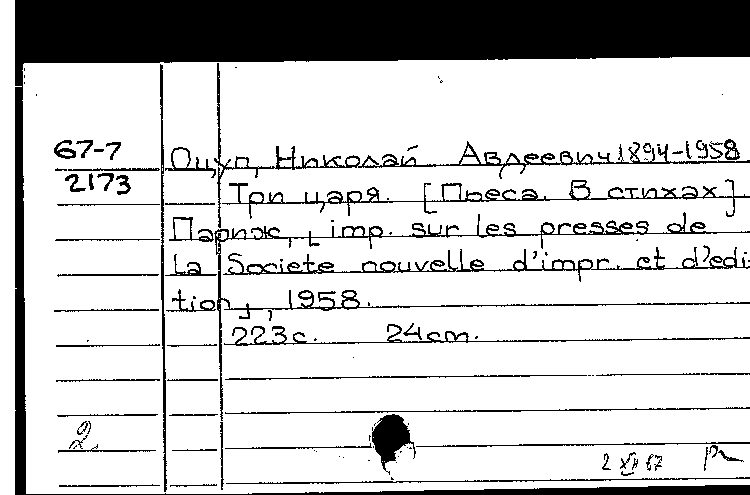 67-7 Оцуп, Николай Авдеевич 1894-1958
2173 Три царя. [Пьеса. В стихах]
Париж, [imp. sur les presses de
la Societe nouvelle d'impr. et d'edi-
tion], 1958.
223с. 24cm.
2
2 XI 67